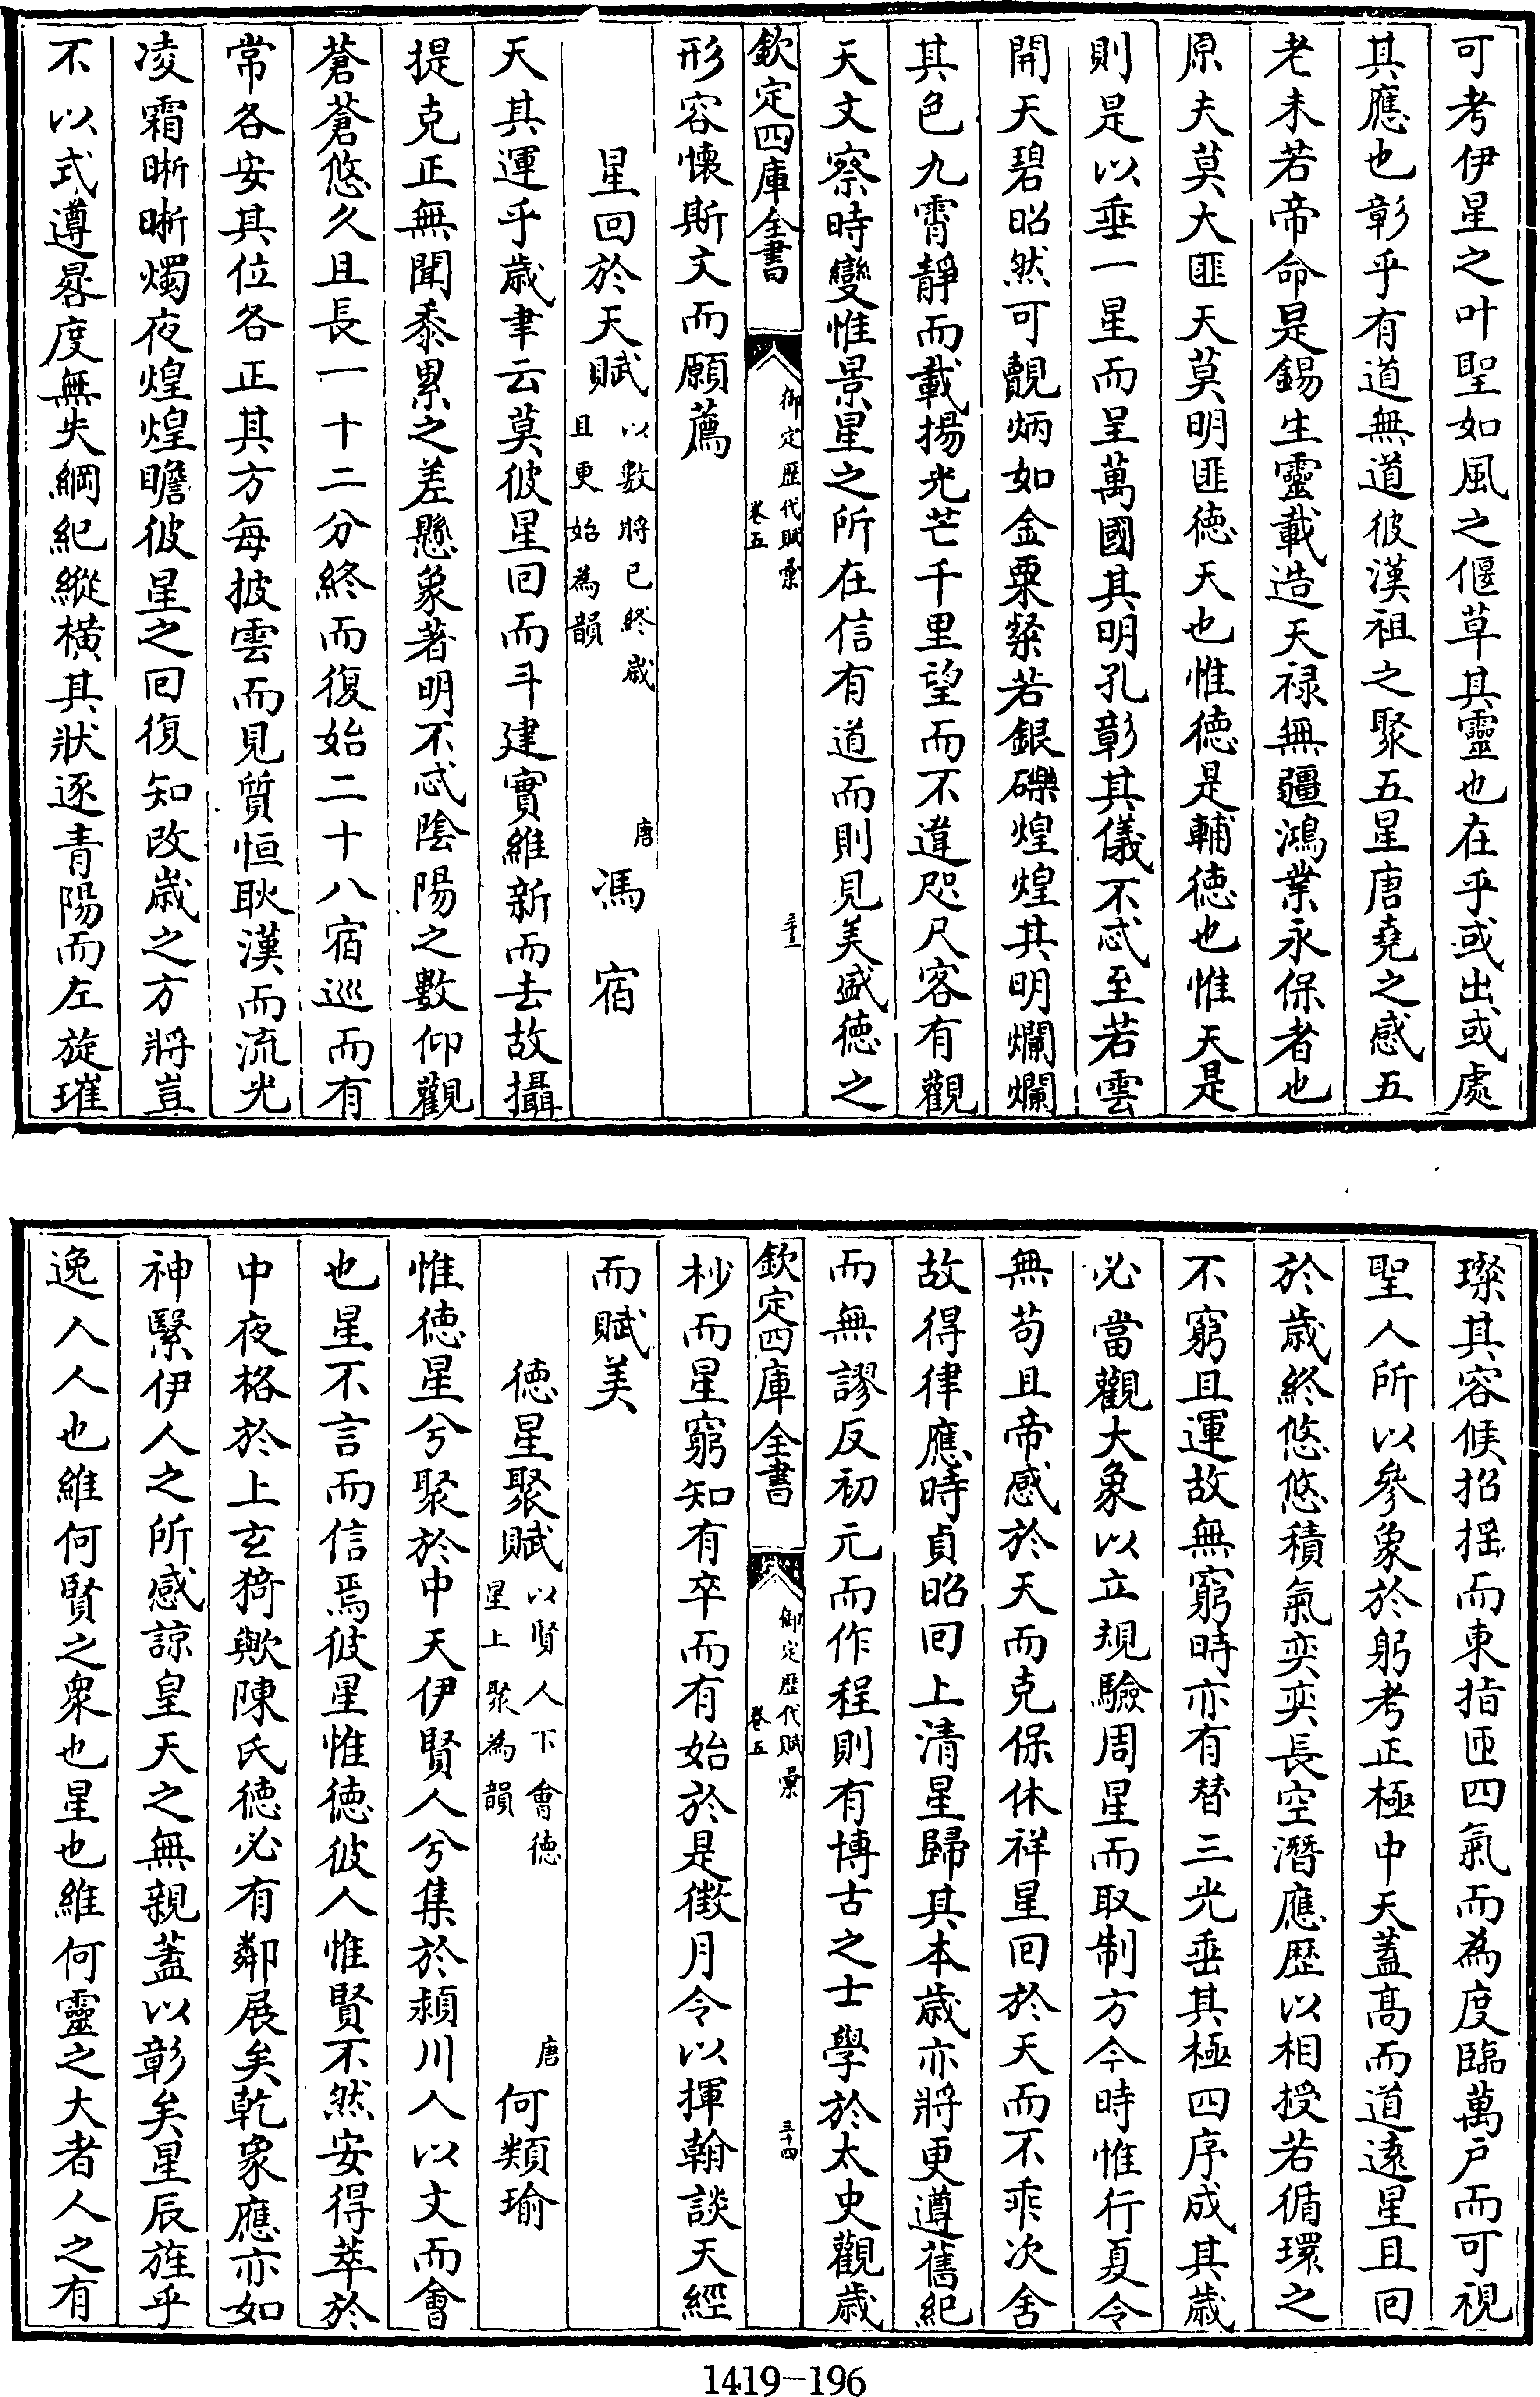 可考伊星之叶聖如風之偃草其靈也在乎或出或處
其應也彰乎有道無道彼漢祖之聚五星唐堯之感五
老未若帝命是錫生靈載造天禄無疆鴻業永保者也
原夫莫大匪天莫明匪徳天也惟徳是輔徳也惟天是
則是以垂一星而呈萬國其明孔彰其儀不忒至若雲
開天碧昭然可覿炳如金粟粲若銀礫煌煌其明爛爛
其色九霄靜而載揚光芒千里望而不違咫尺客有觀
天文察時變惟景星之所在信有道而則見美盛徳之
欽定四庫全書
御定歴代賦彙
卷五
三十三
形容懐斯文而願薦
星回於天賦
以數將已終歳
且更始為韻
唐
馮宿
天其運乎歳聿云莫彼星回而斗建實維新而去故攝
提克正無聞黍累之差懸象著明不忒陰陽之數仰觀
蒼蒼悠久且長一十二分終而復始二十八宿巡而有
常各安其位各正其方每披雲而見質恒耿漢而流光
凌霜晣晣燭夜煌煌瞻彼星之回復知改歳之方將豈
不以式遵晷度無失綱紀縱橫其狀逐青陽而左旋璀
璨其容候招揺而東指匝四氣而為度臨萬戸而可視
聖人所以參象於躬考正極中天蓋髙而道遠星且回
於歳終悠悠積氣奕奕長空潛應歴以相授若循環之
不窮且運故無窮時亦有替三光垂其極四序成其歳
必當觀大象以立規驗周星而取制方今時惟行夏令
無苟且帝感於天而克保休祥星回於天而不乖次舍
故得律應時貞昭回上清星歸其本歳亦將更遵舊紀
而無謬反初元而作程則有博古之士學於太史觀歳
欽定四庫全書
御定歴代賦彙
卷五
三十四
杪而星窮知有卒而有始於是徴月令以揮翰談天經
而賦美
徳星聚賦
以賢人下會徳
星上聚為韻
唐
何類瑜
惟徳星兮聚於中天伊賢人兮集於潁川人以文而會
也星不言而信焉彼星惟徳彼人惟賢不然安得萃於
中夜格於上玄猗歟陳氏徳必有鄰展矣乾象應亦如
神繄伊人之所感諒皇天之無親蓋以彰矣星辰旌乎
逸人人也維何賢之衆也星也維何靈之大者人之有
1419-196